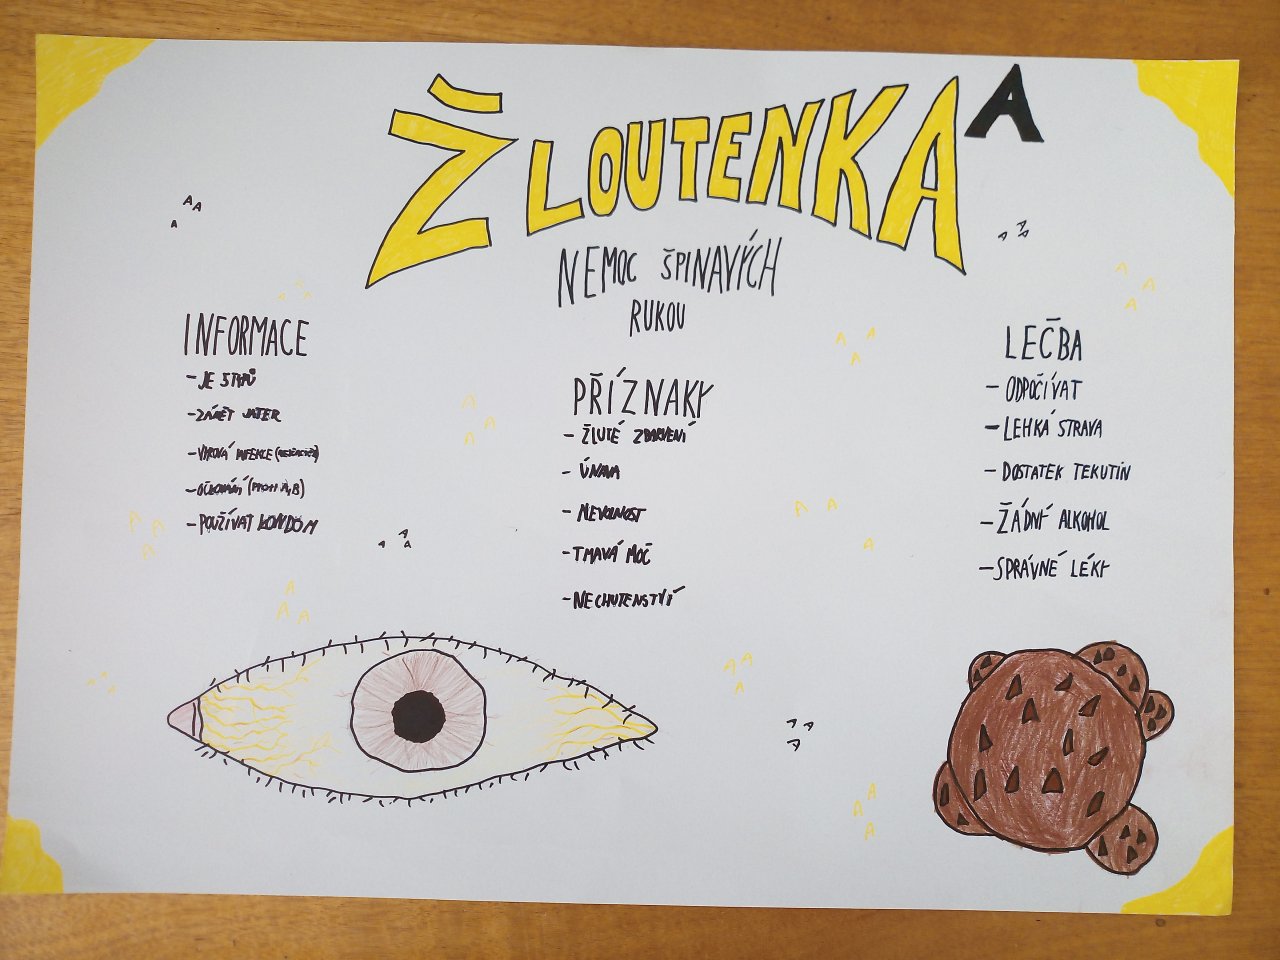 ŽLOUTENKA A
NEMOC ŠPINAVÝCH
RUKOU
INFORMACE
- JE 5 TYPŮ
- ZÁNĚT JATER
- VIROVÁ INFEKCE
- OČKOVÁNÍ (PROTI A,B)
- POUŽÍVAT KONDOM
PŘÍZNAKY
- ŽLUTÉ ZBARVENÍ
- ÚNAVA
- NEVOLNOST
- TMAVÁ MOČ
- NECHUTENSTVÍ
LEČBA
- ODPOČÍVAT
- LEHKÁ STRAVA
- DOSTATEK TEKUTIN
- ŽÁDNÝ ALKOHOL
- SPRÁVNÉ LÉKY